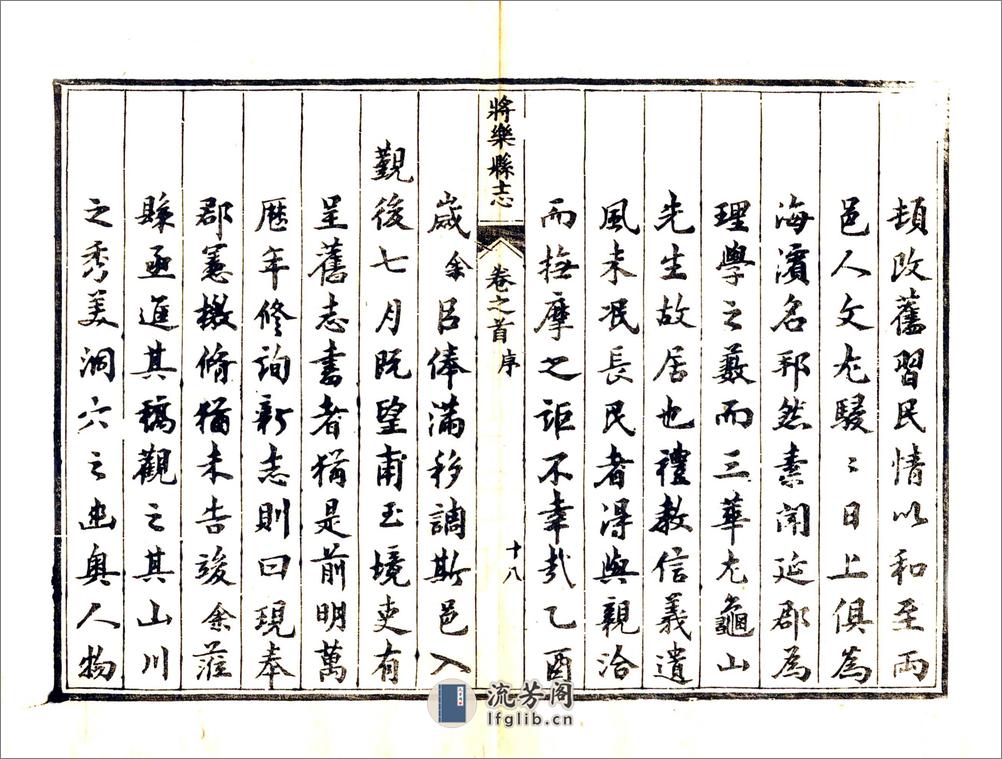 頓改舊習民情以和至兩
邑人文尤駸〻日上俱為
海濱名邦然素聞延郡為
理學之藪而三華尤龜山
先生故居也禮教信義遺
風未泯長民者得與親洽
而撫摩之詎不幸哉乙酉
將樂縣志
卷之首 序
十八
歲余以俸滿移調斯邑入
覲後七月既望甫至境吏有
呈舊志書者猶是前明萬
歷年修詢新志則曰現奉
郡憲檄脩猶未告竣余蒞
縣亟進其稿觀之其山川
之秀美洞穴之幽奥人物
流芳阁
lfglib.cn